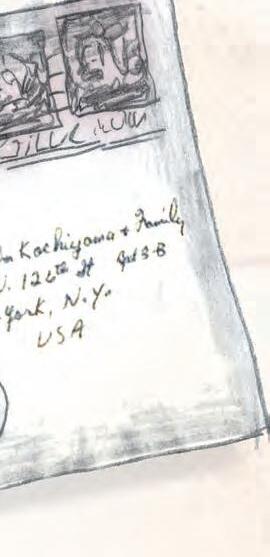 Kochiyama + Family
W. 126th St Apt 3-B
York, N.Y.
USA